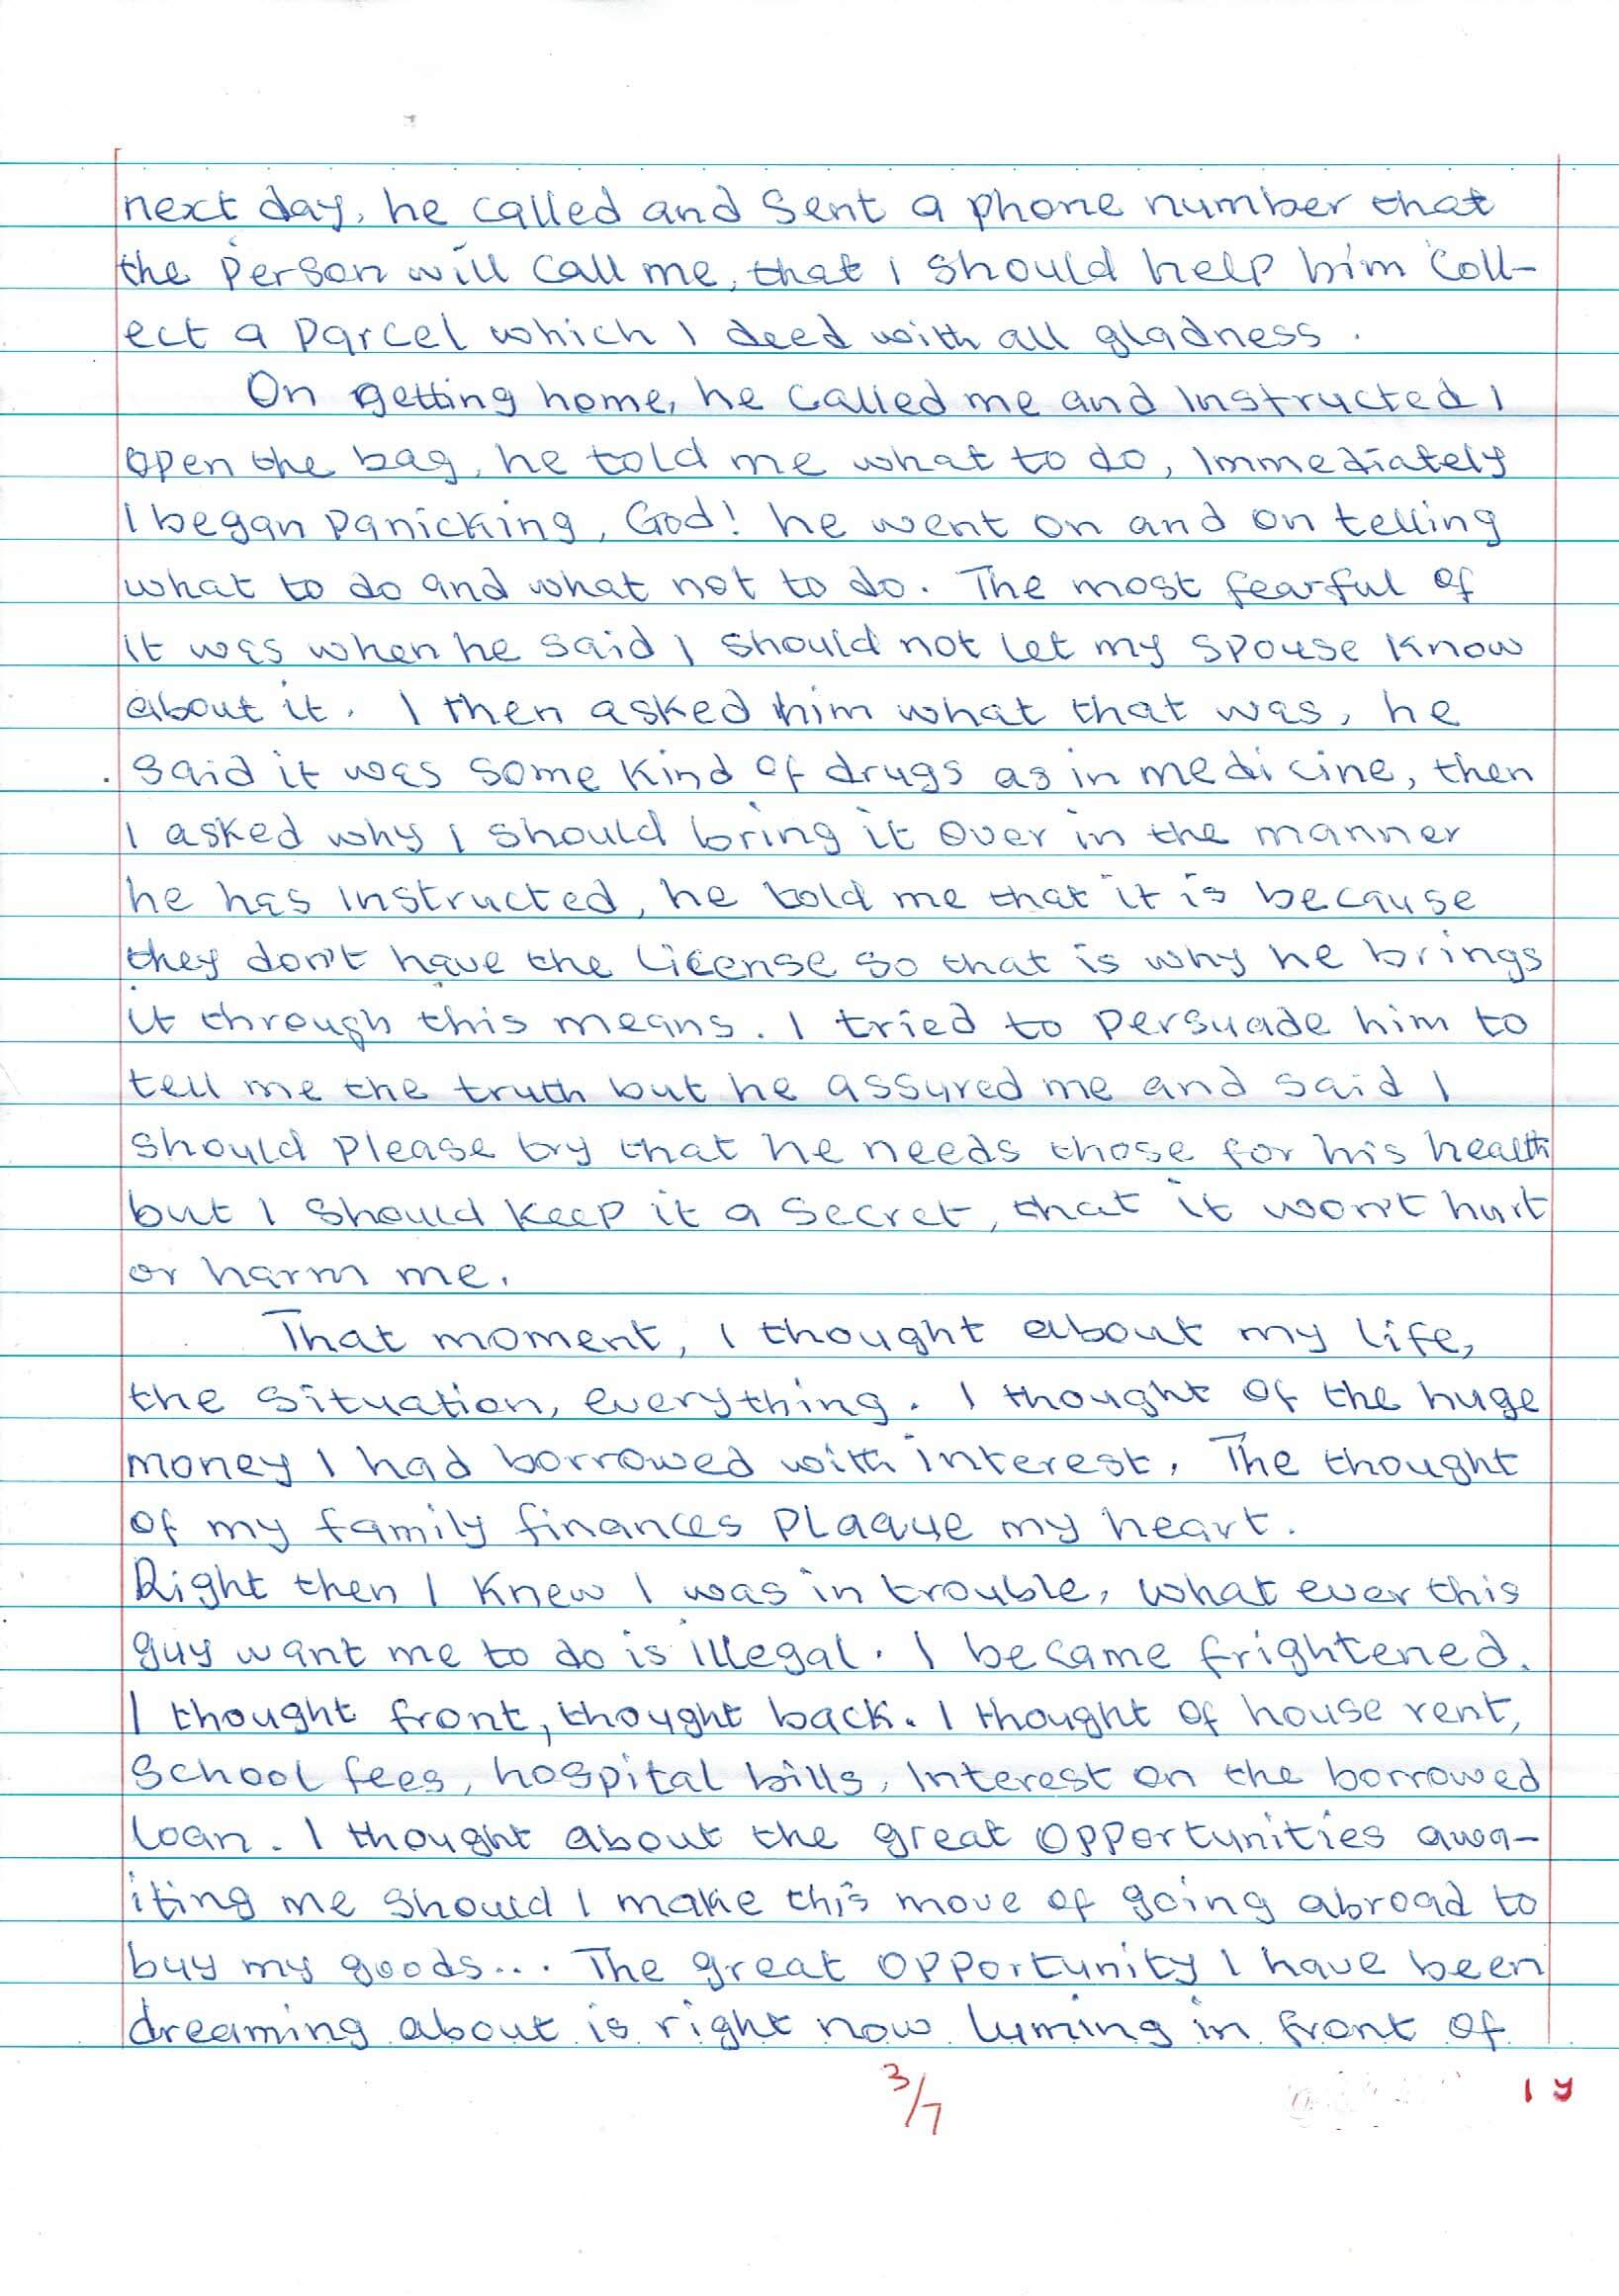 next day, he called and sent a phone number that
the person will call me, that I should help him coll-
ect a parcel which I deed with all gladness.
On getting home, he called me and instructed I
open the bag, he told me what to do, Immediately
I began panicking, God! he went on and on telling
what to do and what not to do. The most fearful of
it was when he said I should not let my spouse know
about it. I then asked him what that was, he
said it was some kind of drugs as in medicine, then
I asked why I should bring it over in the manner
he has instructed, he told me that it is because
they don't have the license so that is why he brings
it through this means. I tried to persuade him to
tell me the truth but he assured me and said I
should please try that he needs those for his health
but I should keep it a secret, that it won't hurt
or harm me.
That moment, I thought about my life,
the situation, everything. I thought of the huge
money I had borrowed with interest. The thought
of my family finances plaque my heart.
Right then I knew I was in trouble, what ever this
guy want me to do is illegal. I became frightened.
I thought front, thought back. I thought of house rent,
school fees, hospital bills, Interest on the borrowed
loan. I thought about the great opportunities awa-
iting me should I make this move of going abroad to
buy my goods... The great opportunity I have been
dreaming about is right now luming in front of
3/7